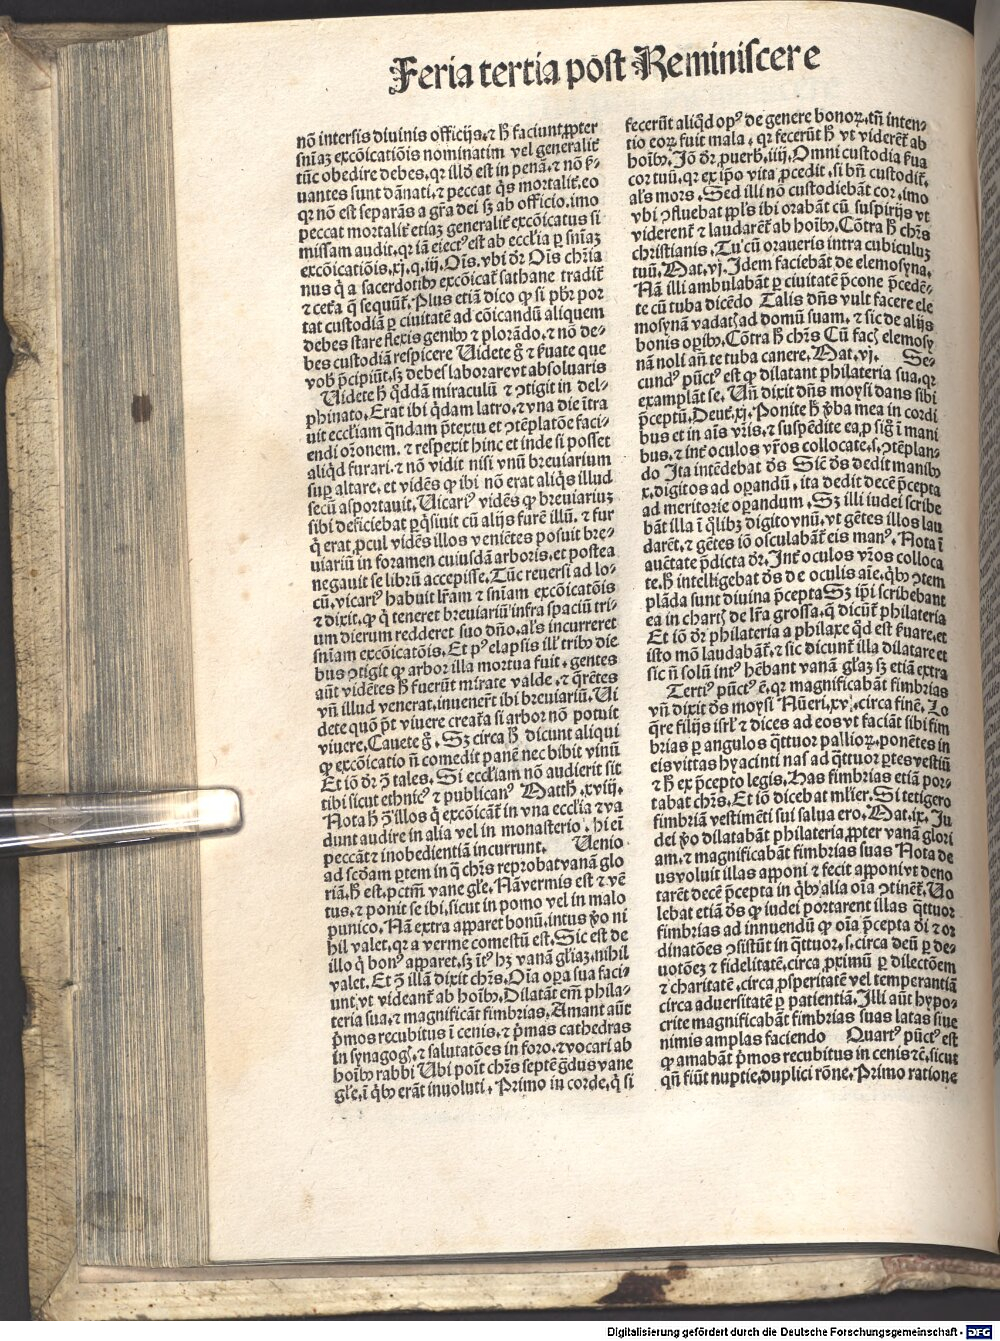 Feria tertia post Reminiscere
nõ intersis diuinis officijs. ⁊ h̃ faciunt ꝓpter
sñiaꝫ excõicatiõis nominatim vel generalit̃
tũc obedire debes. qr illđ est in penã. ⁊ nõ ẜ-
uantes sunt dãnati. ⁊ peccat q̃s mortalit̃. eo
qr nõ est separãs a gr̃a dei sꝫ ab officio. imo
peccat mortalit̃ etiaꝫ generalit̃ excõicatus si
missam audit. qr iã eiectꝰ est ab eccl̃ia ꝑ sñiaꝫ
excõicatiõis. xj. q. iij. Oĩs. vbi dr̃ Oĩs chr̃ia
nus q̃ a sacerdotibꝰ excõicat̃ sathane tradit̃
⁊ cet̃a q̃ sequũt̃. Plus etiã dico ꝙ si pbr̃ por
tat custodiã ꝑ ciuitatẽ ad cõicandũ aliquem
debes stare flexis genibꝰ ⁊ plorãdo. ⁊ nõ de-
bes custodiã respicere Uidete g̃ ⁊ ẜuate que
vob̃ p̃cipiũt. sꝫ debes laborare vt absoluaris
Uidete h̃ q̃ddã miraculũ ⁊ ꝯtigit in del-
phinato. Erat ibi q̃dam latro. ⁊ vna die ĩtra
uit eccl̃iam q̃ndam p̃textu et ꝯtẽplatõe faci-
endi or̃onem. ⁊ respexit hinc et inde si posset
aliq̃d furari. ⁊ nõ vidit nisi vnũ breuiarium
suꝑ altare. et vidẽs ꝙ ibi nõ erat aliq̃s illud
secũ asportauit. Uicariꝰ vidẽs ꝙ breuiariuꝫ
sibi deficiebat ꝑq̃siuit cũ alijs furẽ illũ. ⁊ fur
q̃ erat ꝓcul vidẽs illos veniẽtes posuit bre-
uiariũ in foramen cuiusdã arboris. et postea
negauit se librũ accepisse. Tũc reuersi ad lo-
cũ. vicariꝰ habuit lr̃am ⁊ sñiam excõicatõis
⁊ dixit. ꝙ q̃ teneret breuiariũ infra spaciũ tri-
um dierum redderet suo dño. al̃s incurreret
sñiam excõicatõis. Et pꝰ elapsis ill̃ tribꝰ die
bus ꝯtigit ꝙ arbor illa mortua fuit. gentes
aũt vidẽtes h̃ fuerũt mirate valde. ⁊ q̃rẽtes
vñ illud venerat. inuener̃t ibi breuiariũ. Ui
dete quõ p̃t viuere creat̃a si arbor nõ potuit
viuere. Cauete g̃. Sꝫ circa h̃ dicunt aliqui
ꝙ excõicatio ñ comedit panẽ nec bibit vinũ
Et iõ dr̃ ꝯ̃ tales. Si eccl̃iam nõ audierit sit
tibi sicut ethnicꝰ ⁊ publicanꝰ Matth. xviij.
Nota h̃ ꝯ̃ illos q̃ excõicãt̃ in vna eccl̃ia ⁊ va
dunt audire in alia vel in monasterio. hi eĩ
peccãt ⁊ inobedientiã incurrunt. Uenio
ad scđam ꝑtem in q̃ chr̃s reprobat vanã glo
riã. h̃ est. pctm̃ vane gl̃e. Nã vermis est ⁊ vẽ
tus. ⁊ ponit se ibi. sicut in pomo vel in malo
punico. Nã extra apparet bonũ. intus ꝟo ni
hil valet. qr a verme comestũ est. Sic est de
illo q̃ bonꝰ apparet. sꝫ ĩtꝰ hꝫ vanã gl̃iaꝫ. nihil
valet. Et ꝯ̃ illã dixit chr̃s. Oĩa oꝑa sua faci-
unt. vt videant̃ ab hoĩbꝰ. Dilatãt em̃ phila-
teria sua. ⁊ magnificãt fimbrias. Amant aũt
p̃mos recubitus ĩ cenis. ⁊ p̃mas cathedras
in synagog̃. ⁊ salutatões in foro. ⁊ vocari ab
hoĩbꝰ rabbi Ubi põit chr̃s septẽ g̃dus vane
gl̃e. ĩ q̃bꝰ erãt inuoluti. Primo in corde. q̃ si
fecerũt aliq̃d opꝰ de genere bonoꝝ. tñ inten-
tio eoꝝ fuit mala. qr fecerũt h̃ vt vider̃et̃ ab
hoĩbꝰ. Iõ dr̃ ꝓuerb. iiij. Omni custodia ẜua
cor tuũ. qr ex ip̃o vita ꝓcedit. si bñ custodit̃.
al̃s mors. Sed illi nõ custodiebãt cor. imo
vbi ꝯfluebat ppl̃s ibi orabãt cũ suspirijs vt
viderent̃ ⁊ laudarẽt̃ ab hoĩbꝰ. Cõtra h̃ chr̃s
christianis. Tu cũ oraueris intra cubiculuꝫ
tuũ. Mat. vj. Idem faciebãt de elemosyna.
Nã illi ambulabãt ꝑ ciuitatẽ p̃cone p̃cedẽ-
te cũ tuba dicẽdo Talis dñs vult facere ele
mosynã vadat̃ ad domũ suam. ⁊ sic de alijs
bonis oꝑibꝰ. Cõtra h̃ chr̃s Cũ fac̃ elemosy
nã noli añ te tuba canere. Mat. vj. Se-
cundꝰ pũctꝰ est ꝙ dilatant philateria sua. qr
examplãt se. Uñ dixit dñs moysi dans sibi
p̃ceptũ. Deut̃. xj. Ponite h̃ ꝟba mea in cordi
bus et in aĩs vr̃is. ⁊ suspẽdite ea. ꝑ sig̃ ĩ mani
bus. ⁊ int̃ oculos vr̃os collocate. s. ꝯtẽplan-
do Ita intẽdebat đs Sic̃ đs dedit manibꝰ
x. digitos ad oꝑandũ. ita dedit decẽ p̃cepta
ad meritorie oꝑandum. Sꝫ illi iudei scribe
bãt illa ĩ q̃libꝫ digito vnũ. vt gẽtes illos lau
darẽt. ⁊ gẽtes iõ osculabãt̃ eis manꝰ. Nota ĩ
auctate p̃dicta dr̃. Int̃ oculos vr̃os colloca
te. h̃ intelligebat đs de oculis aĩe. q̃bꝰ ꝯtem
plãda sunt diuina p̃cepta Sꝫ ip̃i scribebant
ea in chart̃ de lr̃a grossa. q̃ dicũt̃ philateria
Et iõ dr̃ philateria a philaxe q̃d est ẜuare. et
isto mõ laudabãt̃. ⁊ sic dicunt̃ illa dilatare et
sic ñ solũ intꝰ hẽbant vanã gl̃aꝫ sꝫ etiã extra
Tertiꝰ pũctꝰ ẽ. qr magnificabãt fimbrias
vñ dixit đs moysi Nũeri. xv. circa finẽ. Lo
q̃re filijs isrl̃ ⁊ dices ad eos vt faciãt sibi fim
brias ꝑ angulos q̃ttuor pallioꝝ. ponẽtes in
eis vittas hyacinti nas ad q̃ttuor ꝑtes vestiũ
⁊ h̃ ex p̃cepto legis. Has fimbrias etiã por-
tabat chr̃s. Et iõ dicebat ml̃ier. Si tetigero
fimbriã vestimẽti sui salua ero. Mat. ix. Iu
dei ꝟo dilatabãt philateria. ꝓpter vanã glori
am. ⁊ magnificabãt fimbrias suas Nota de
us voluit illas apponi ⁊ fecit apponi vt deno
tarẽt decẽ p̃cepta in q̃bꝰ alia oĩa ꝯtinẽt̃. Uo
lebat etiã đs ꝙ iudei portarent illas q̃ttuor
fimbrias ad innuendũ ꝙ oĩa p̃cepta đi ⁊ or
dinatões ꝯsistũt in q̃ttuor. s. circa deũ ꝑ de-
uotõeꝫ ⁊ fidelitatẽ. circa ꝓximũ ꝑ dilectõem
⁊ charitatẽ. circa ꝓsperitatẽ vel temperantiã
circa aduersitatẽ ꝑ patientiã. Illi aũt hypo-
crite magnificabãt fimbrias suas latas siue
nimis amplas faciendo Quartꝰ pũctꝰ est
ꝙ amabãt p̃mos recubitus in cenis ⁊c̃. sicut
qñ fiũt nuptie. duplici rõne. Primo ratione
Digitalisierung gefördert durch die Deutsche Forschungsgemeinschaft - DFG